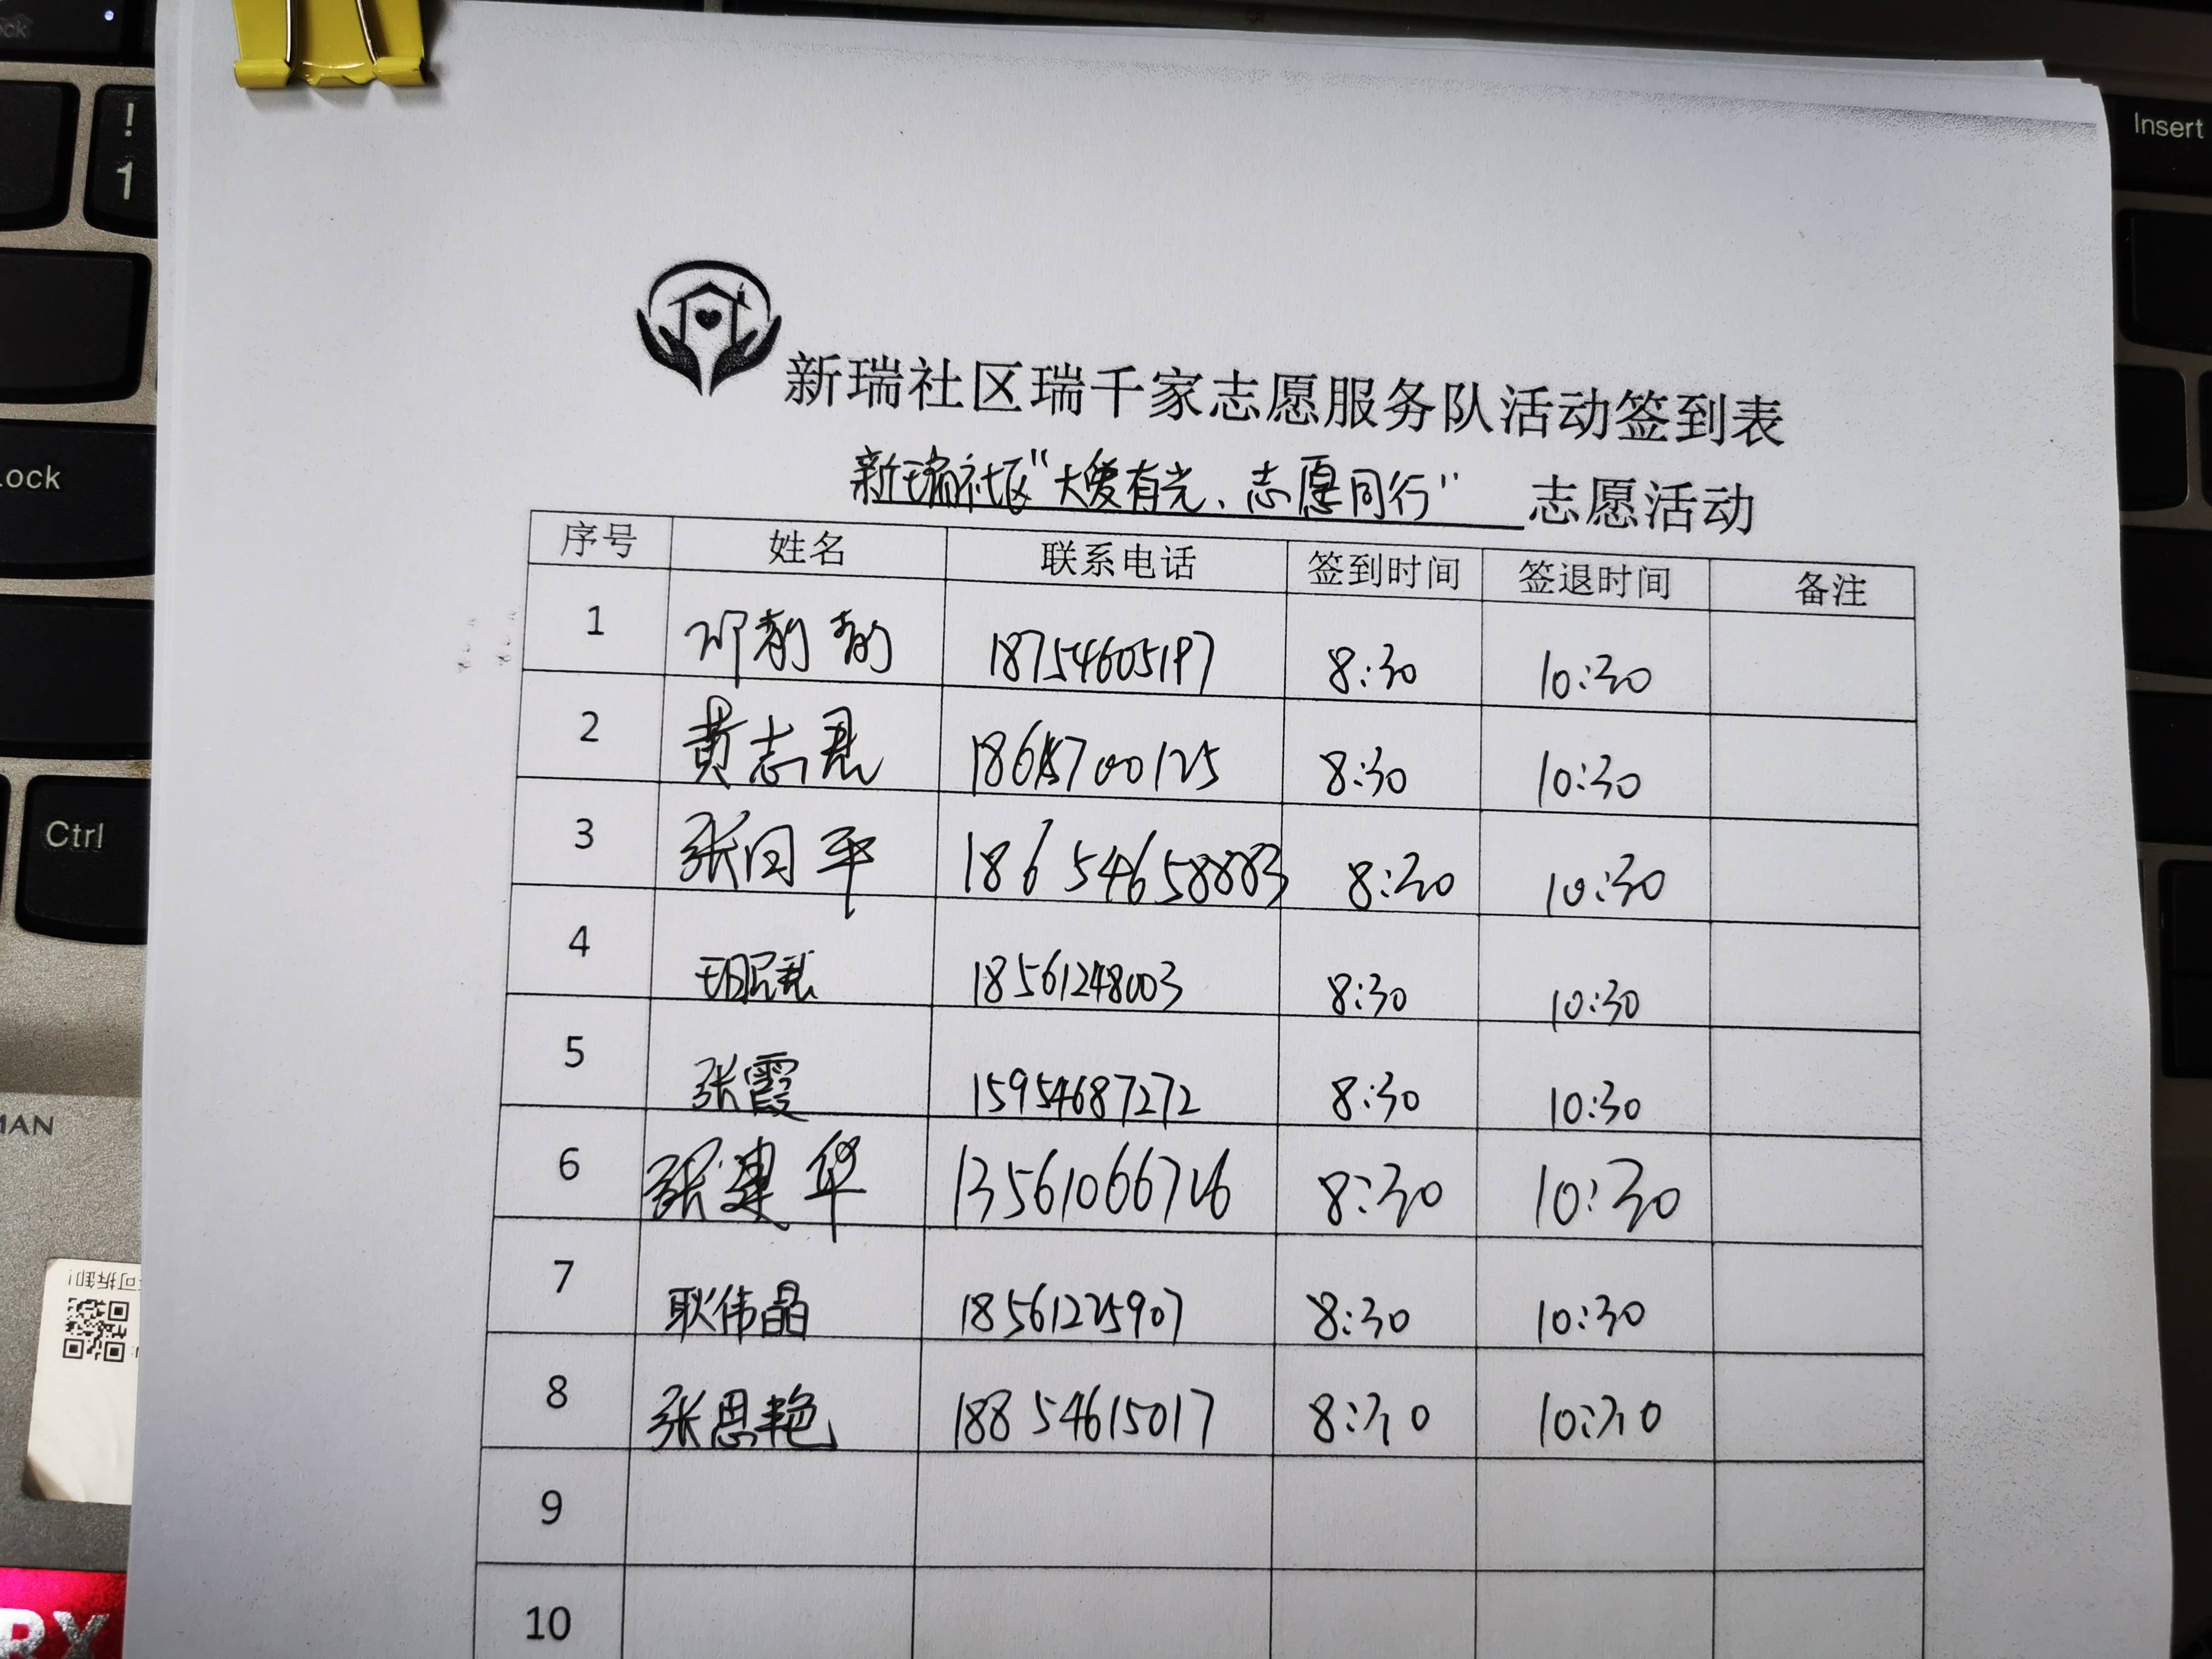 Insert
!
1
Lock
Ctrl
新瑞社区瑞千家志愿服务队活动签到表
新瑞社区“大爱有光、志愿同行” 志愿活动
序号 姓名 联系电话 签到时间 签退时间 备注
1 18754605197 8:30 10:30
2 黄志君 8:30 10:30
3 张同平 18654658883 8:30 10:30
4 18561248003 8:30 10:30
5 张霞 15954687272 8:30 10:30
6 张建华 13561066726 8:30 10:30
7 耿伟晶 18561225907 8:30 10:30
8 张思艳 18854615017 8:30 10:30
9
10